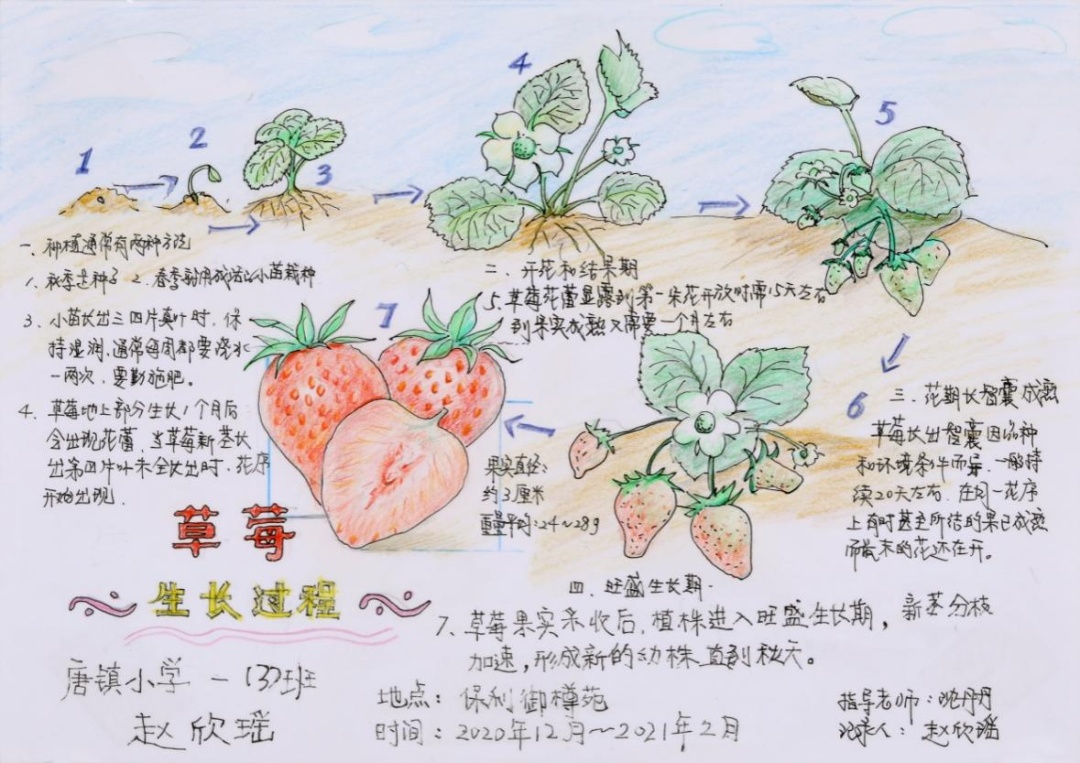 1
2
3
4
5
6
7
一、种植通常有两种方法
1、秋季是种子 2、春季剪用成活的小苗栽种
3、小苗长出三四片真叶时，保
持湿润，通常每周都要浇水
一两次，要勤施肥。
4、草莓地上部分生长1个月后
会出现花蕾，当草莓新茎长
出第四片叶未全长出时，花序
开始出现。
二、开花和结果期
5、草莓花蕾显露到第一朵花开放时需15天左右
到果实成熟又需要一个月左右
三、花期长智囊成熟
草莓长出智囊因品种
和环境条件而异，一般持
续20天左右，在同一花序
上有时甚至所结的果已成熟
而最末的花还在开。
果实直径：
约3厘米
重量平均：24～28g
四、旺盛生长期
7、草莓果实采收后，植株进入旺盛生长期，新茎分枝
加速，形成新的幼株直到秋天。
草莓
生长过程
唐镇小学 一（3）班
赵欣瑶
地点：保利御樽苑
时间：2020年12月～2021年2月
指导老师：丹丹
记录人：赵欣瑶